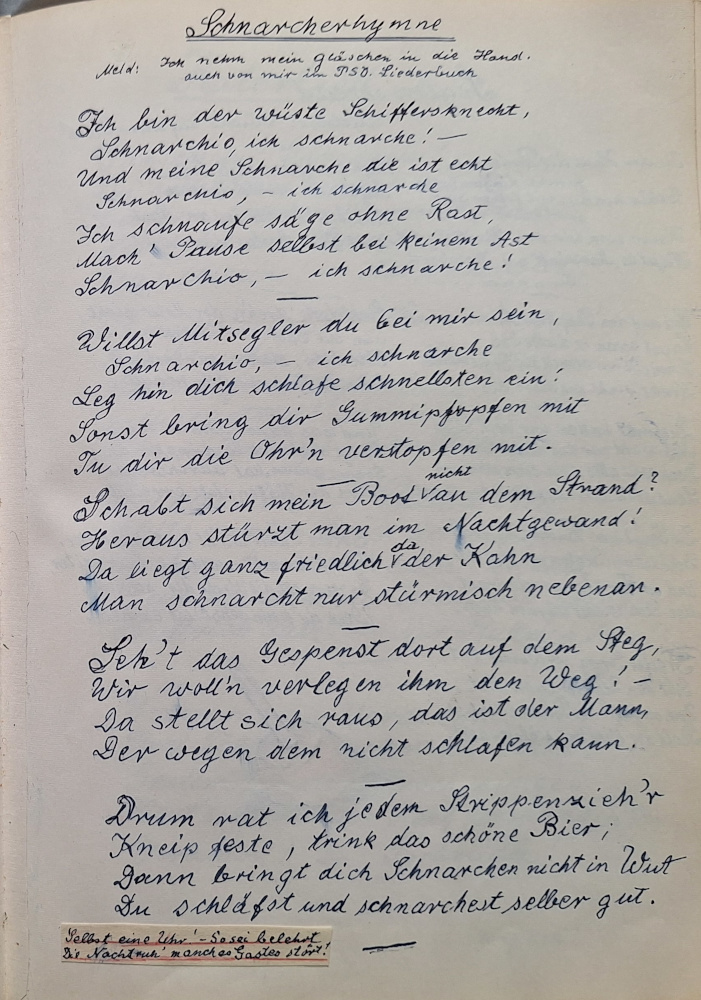 Schnarcherhymne
Meld: Ich nehm mein Gläschen in die Hand.
auch von mir im PSV. Liederbuch
Ich bin der wüste Schiffersknecht,
Schnarchio, ich schnarche! —
Und meine Schnarche die ist echt
Schnarchio, – ich schnarche
Ich schnaufe säge ohne Rast,
Mach' Pause selbst bei keinem Ast
Schnarchio, – ich schnarche!
Willst Mitsegler du bei mir sein,
Schnarchio, – ich schnarche
Leg hin dich schlafe schnellsten ein!
Sonst bring dir Gummipfropfen mit
Tu dir die Ohr'n verstopfen mit.
Schabt sich mein Boot nicht an dem Strand?
Heraus stürzt man im Nachtgewand!
Da liegt ganz friedlich da der Kahn
Man schnarcht nur stürmisch nebenan.
Seh't das Gespenst dort auf dem Steg,
Wir woll'n verlegen ihm den Weg! –
Da stellt sich raus, das ist der Mann,
Der wegen dem nicht schlafen kann.
Drum rat ich jedem Strippenzieh'r
Kneip feste, trink das schöne Bier;
Dann bringt dich Schnarchen nicht in Wut
Du schläfst und schnarchest selber gut.
Selbst eine Uhr! – So sei belehrt
Die Nachtruh' manches Gastes stört!